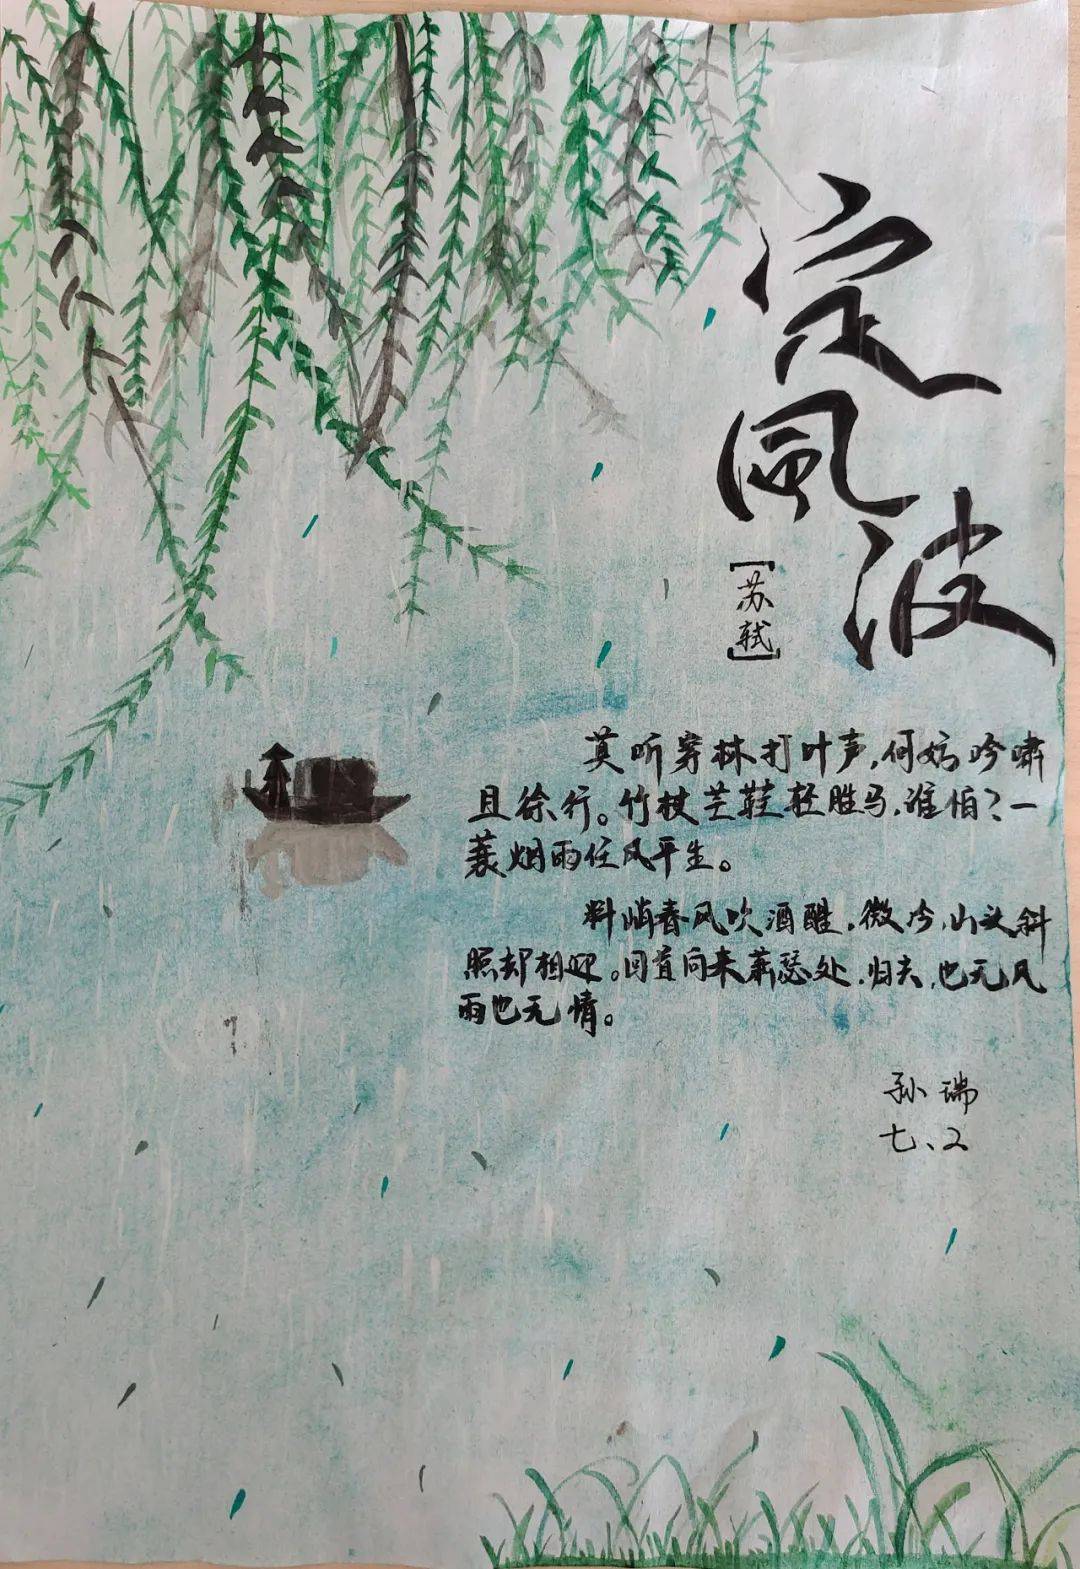 定风波
[苏轼]
莫听穿林打叶声,何妨吟啸
且徐行。竹杖芒鞋轻胜马,谁怕?一
蓑烟雨任风平生。
料峭春风吹酒醒,微冷,山头斜
照却相迎。回首向来萧瑟处,归去,也无风
雨也无情。
孙瑞
七、2